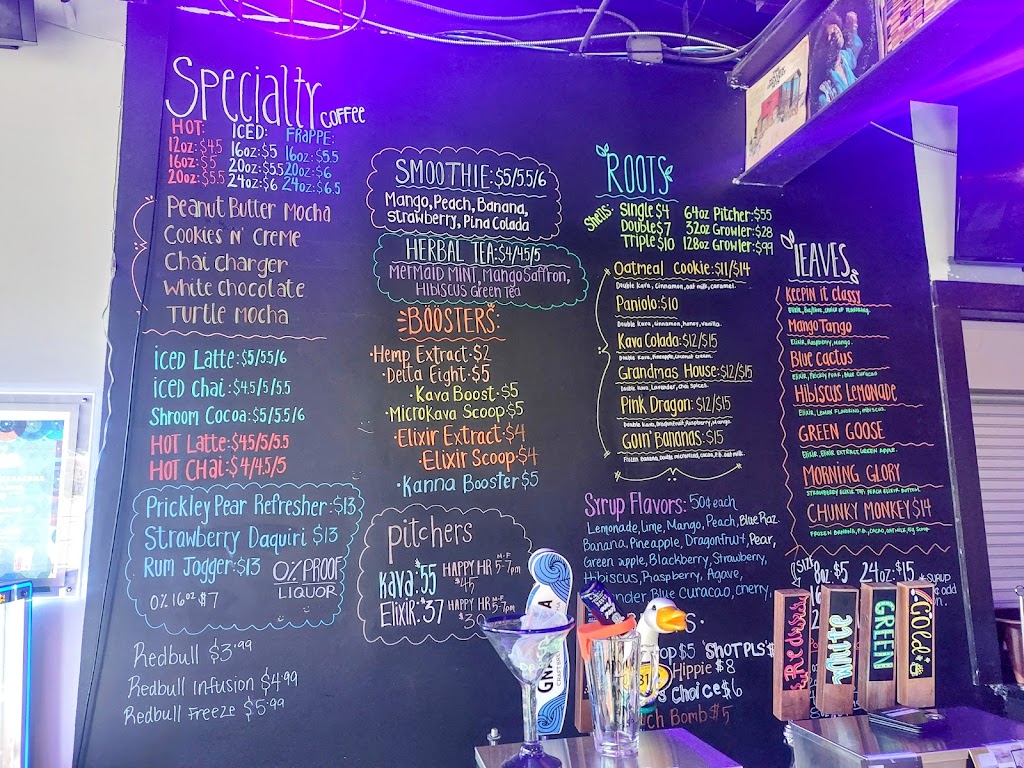 Specialty coffee
HOT: ICED: FRAPPE:
12oz: $4.5 16oz: $5 16oz: $5.5
16oz: $5 20oz: $5.5 20oz: $6
20oz: $5.5 24oz: $6 24oz: $6.5
Peanut Butter Mocha
Cookies N' Creme
Chai Charger
White Chocolate
Turtle Mocha
iced Latte: $5/5.5/6
iced chai: $4.5/5/5.5
Shroom Cocoa: $5/5.5/6
HOT Latte: $4.5/5/5.5
HOT CHai: $4/4.5/5
Prickley Pear Refresher: $13
Strawberry Daquiri $13
Rum Jogger: $13
0% PROOF
LIQUOR
0% 16oz $7
Redbull $3.99
Redbull Infusion $4.99
Redbull Freeze $5.99
SMOOTHIE: $5/5.5/6
Mango, Peach, Banana,
strawberry, Pina Colada
HERBAL TEA: $4/4.5/5
Mermaid Mint, Mango Saffron,
Hibiscus Green Tea
BOOSTERS:
Hemp Extract - $2
Delta Eight - $5
Kava Boost - $5
Microkava Scoop - $5
Elixir Extract - $4
Elixir Scoop - $4
Kanna Booster $5
pitchers
kava: $55 HAPPY HR M-F 5-7pm
$45
Elixir: $37 HAPPY HR M-F 5-7pm
ROOTS
Shells: Single $4 64oz Pitcher: $55
Double $7 32oz Growler: $28
Triple $10 128oz Growler: $99
Oatmeal Cookie: $11/$14
Double Kava, Cinnamon, oat milk, caramel.
Paniolo: $10
Double Kava, cinnamon, honey, vanilla.
Kava Colada: $12/$15
Double Kava, Pineapple, Coconut cream.
Grandmas House: $12/$15
Double Kava, Lavender, Chai Spices.
Pink Dragon: $12/$15
Double Kava, Dragonfruit, Raspberry, Mango.
Goin' Bananas: $15
Syrup Flavors: 50¢ each
Lemonade, Lime, Mango, Peach, Blue Raz
Banana, Pineapple, Dragonfruit, Pear,
Green apple, Blackberry, Strawberry,
Hibiscus, Raspberry, Agave,
Blue Curacao, cherry,
$5 'SHOT PLS' $
Hippie $8
Choice $6
Bomb $5
LEAVES
Keepin it classy
Mango Tango
Elixir, Raspberry, Mango.
Blue Cactus
Elixir, Prickly Pear, Blue Curacao
Hibiscus Lemonade
Elixir, Lemon Flavoring, Hibiscus.
Green Goose
Elixir, Elixir Extract, Green Apple.
Morning Glory
Strawberry Elixir Top, Peach Elixir Bottom.
Chunky Monkey $14
SIZE 8oz: $5 24oz: $15
+ syrup
add
on
Redwa
White
GREEN
Gold